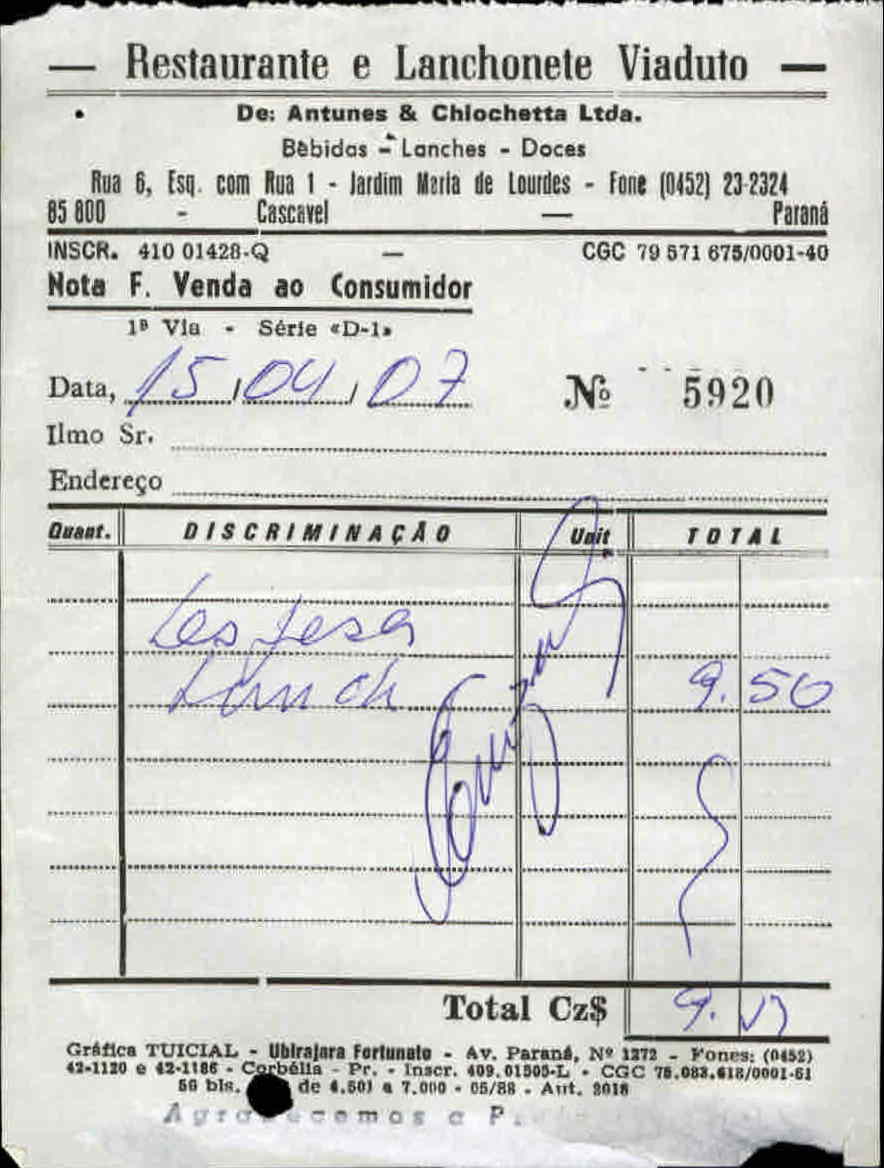 Restaurante e Lanchonete Viaduto
De: Antunes & Chiochetta Ltda.
Bebidas - Lanches - Doces
Rua 6, Esq. com Rua 1 - Jardim Maria de Lourdes - Fone (0452) 23-2324
85 800 - Cascavel — Paraná
INSCR. 410 01428-Q — CGC 79 571 675/0001-40
Nota F. Venda ao Consumidor
1ª Via - Série «D-1»
Data, 15/04/07 Nº 5920
Ilmo Sr.
Endereço
Quant. DISCRIMINAÇÃO Unit TOTAL
Lanch 9.50
Total Cz$ 9.
Gráfica TUICIAL - Ubirajara Fortunato - Av. Paraná, Nº 1272 - Fones: (0452)
42-1120 e 42-1186 - Corbélia - Pr. - Inscr. 409.01505-L - CGC 78.083.618/0001-61
50 bls. de 4.501 a 7.000 - 05/88 - Aut. 2018